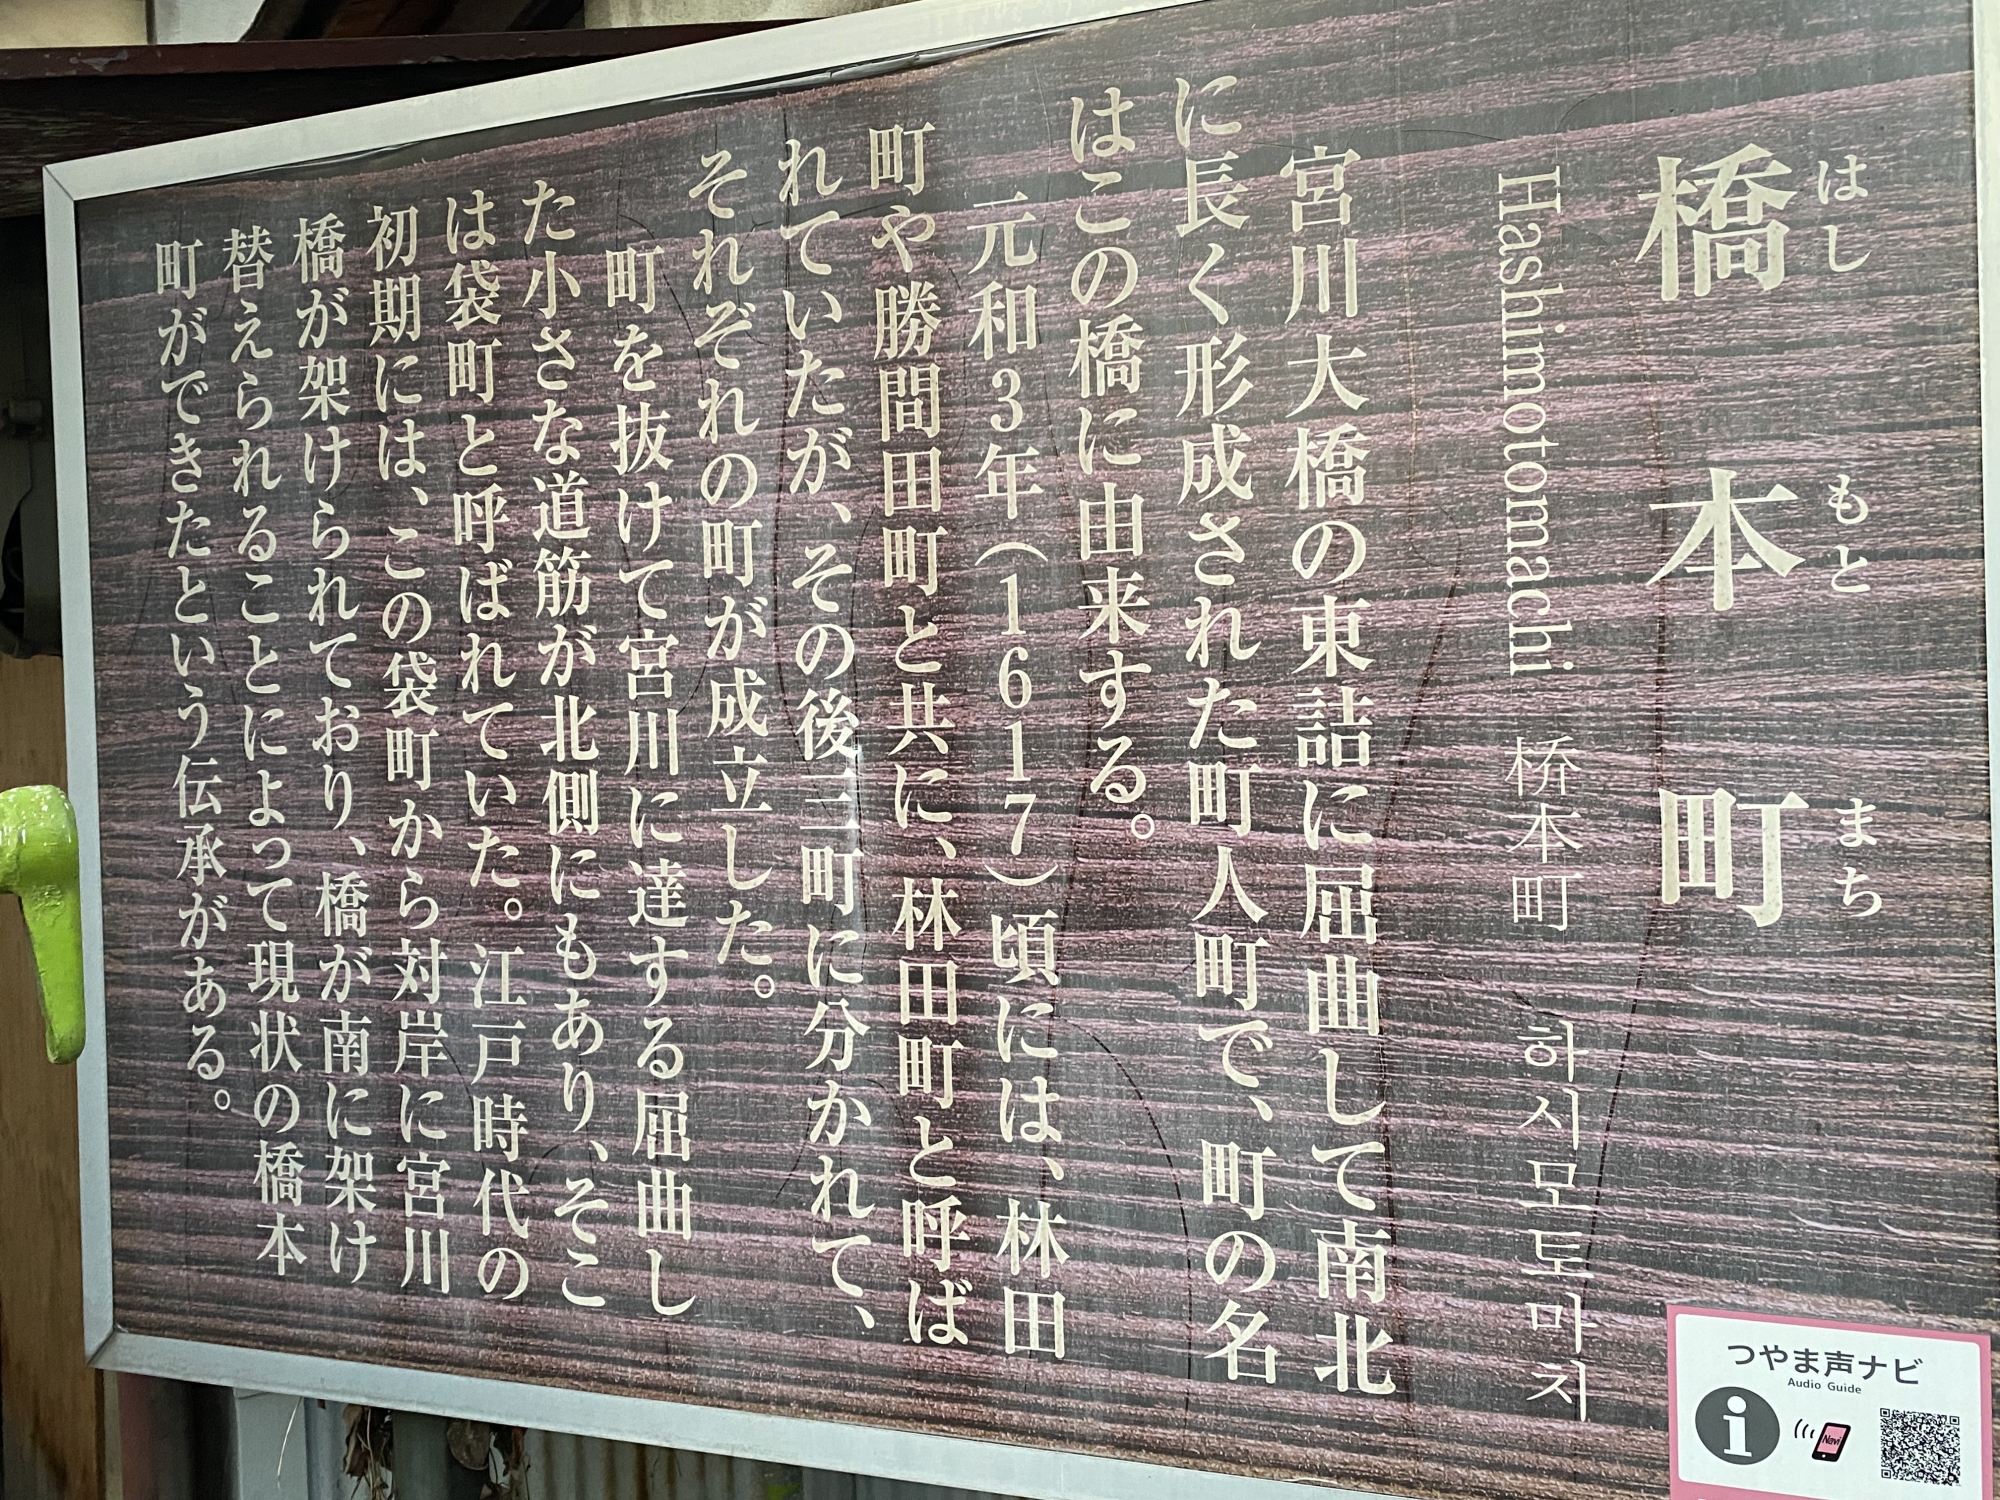 橋本町
はし もと まち
Hashimotomachi 桥本町 하시모토마치
宮川大橋の東詰に屈曲して南北
に長く形成された町人町で、町の名
はこの橋に由来する。
元和3年（1617）頃には、林田
町や勝間田町と共に、林田町と呼ば
れていたが、その後三町に分かれて、
それぞれの町が成立した。
町を抜けて宮川に達する屈曲し
た小さな道筋が北側にもあり、そこ
は袋町と呼ばれていた。江戸時代の
初期には、この袋町から対岸に宮川
橋が架けられており、橋が南に架け
替えられることによって現状の橋本
町ができたという伝承がある。
つやま声ナビ
Audio Guide
i
Navi